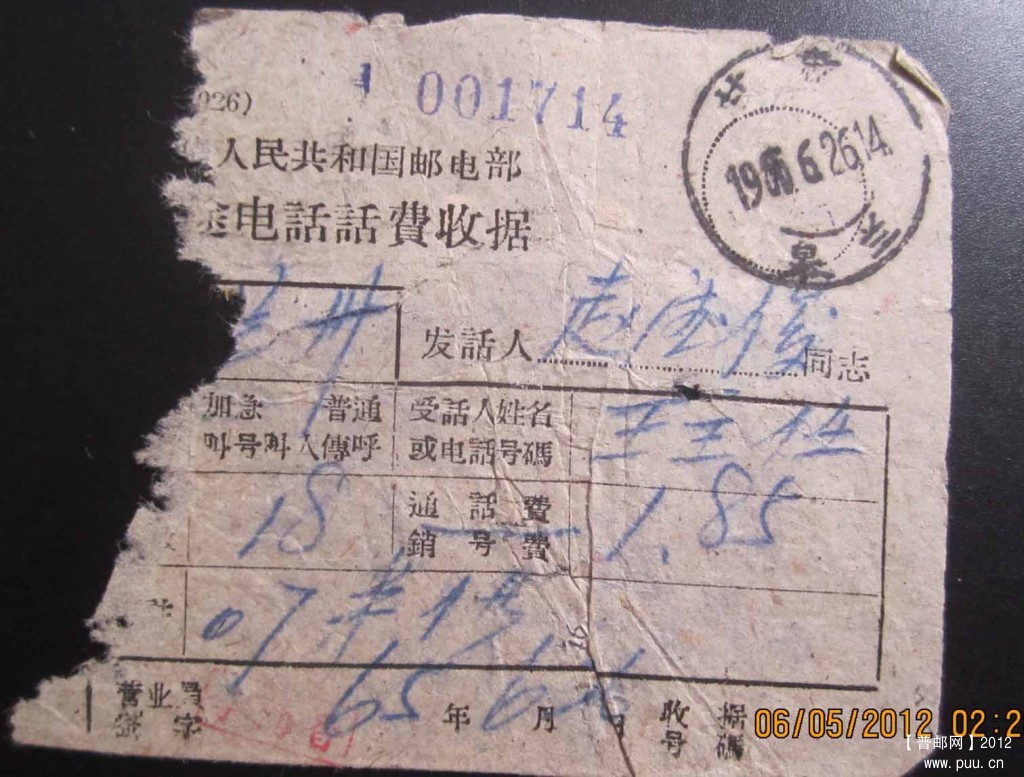 1 001714
026)
人民共和国邮电部
途电話話費收据
甘肃
6.26.14
皋兰
兰州
发話人 赵 俊 同志
加急 普通
叫号叫人傳呼
受話人姓名
或电話号碼
王三
18
通話費
銷号費
1.85
07
营业員
签字
65年6月26日
收据
号碼
06/05/2012 02:2
【普邮网】2012
www.puu.cn